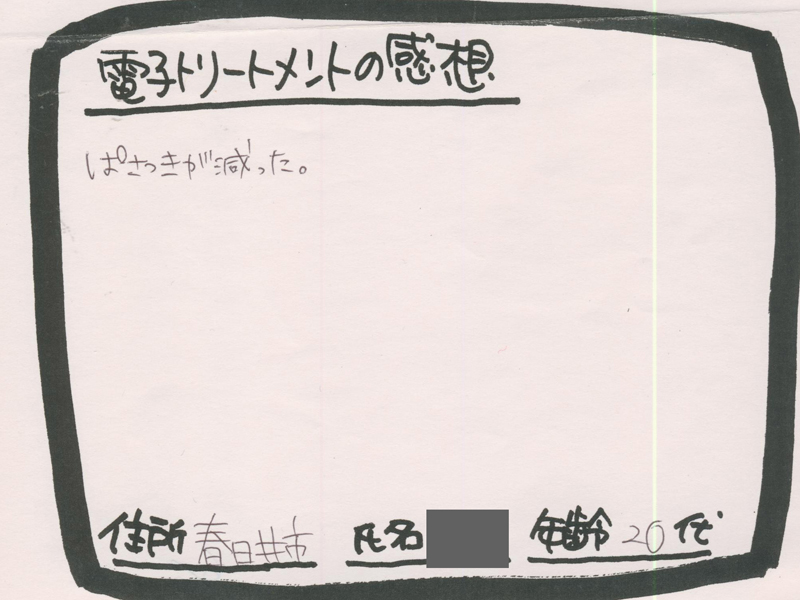 電子トリートメントの感想
ぱさつきが減った。
住所 春日井市 氏名 年齢 20代